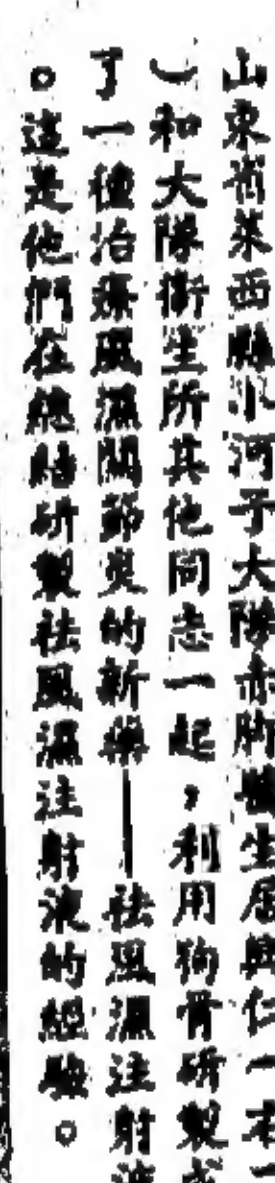 山東省萊西縣小河子大隊赤脚醫生居興仁一右一
）和大隊衛生所其他同志一起，利用狗骨研製成
了一種治療風濕關節炎的新藥——祛風濕注射液
。這是他們在總結研製祛風濕注射液的經驗。